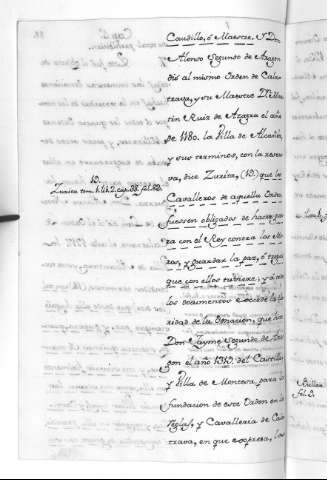 Caudillo, ó Maestre. Y Don
Alonso Segundo de Aragon
dió al mismo Orden de Cala-
trava, y su Maestre D. Mar-
tin Ruiz de Azagra el año
de 1180. la Villa de Alcañiz,
y sus terminos, con la reser-
va, dice Zurita, (10.) que los
Cavalleros de aquella Orden
fuesen obligados de hacer gue-
rra con el Rey contra los Mo-
ros, y guardar la paz, ó tregua
que con ellos tubiere; y á
los documentos
de la Donacion, que hizo
Don Jayme Segundo de Ara-
gon el año 1319. del Castillo,
y Villa de Montesa, para la
fundacion de este Orden en la
regla, y Cavalleria de Cala-
trava, en que expresa, los
10.
Zurita tom. 1. lib. 2. cap.